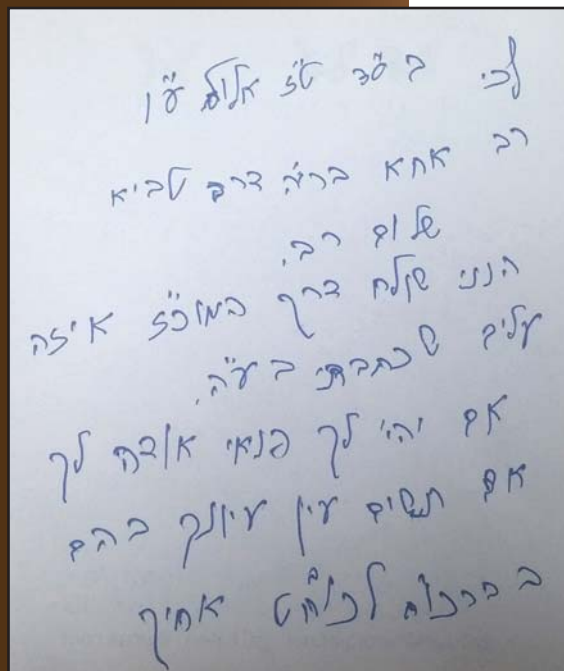 ב ס"ד ט"ז אלול ע"ו
רב אחא בריה דרב טביא
שלום רב,
הנני שולח דרך המוכ"ז איזה
עלים שכתבתי בע"ה.
אם יהי' לך פנאי אודה לך
אם תשים עין עיונך בהם
בברכת לכוח"ט אחיך